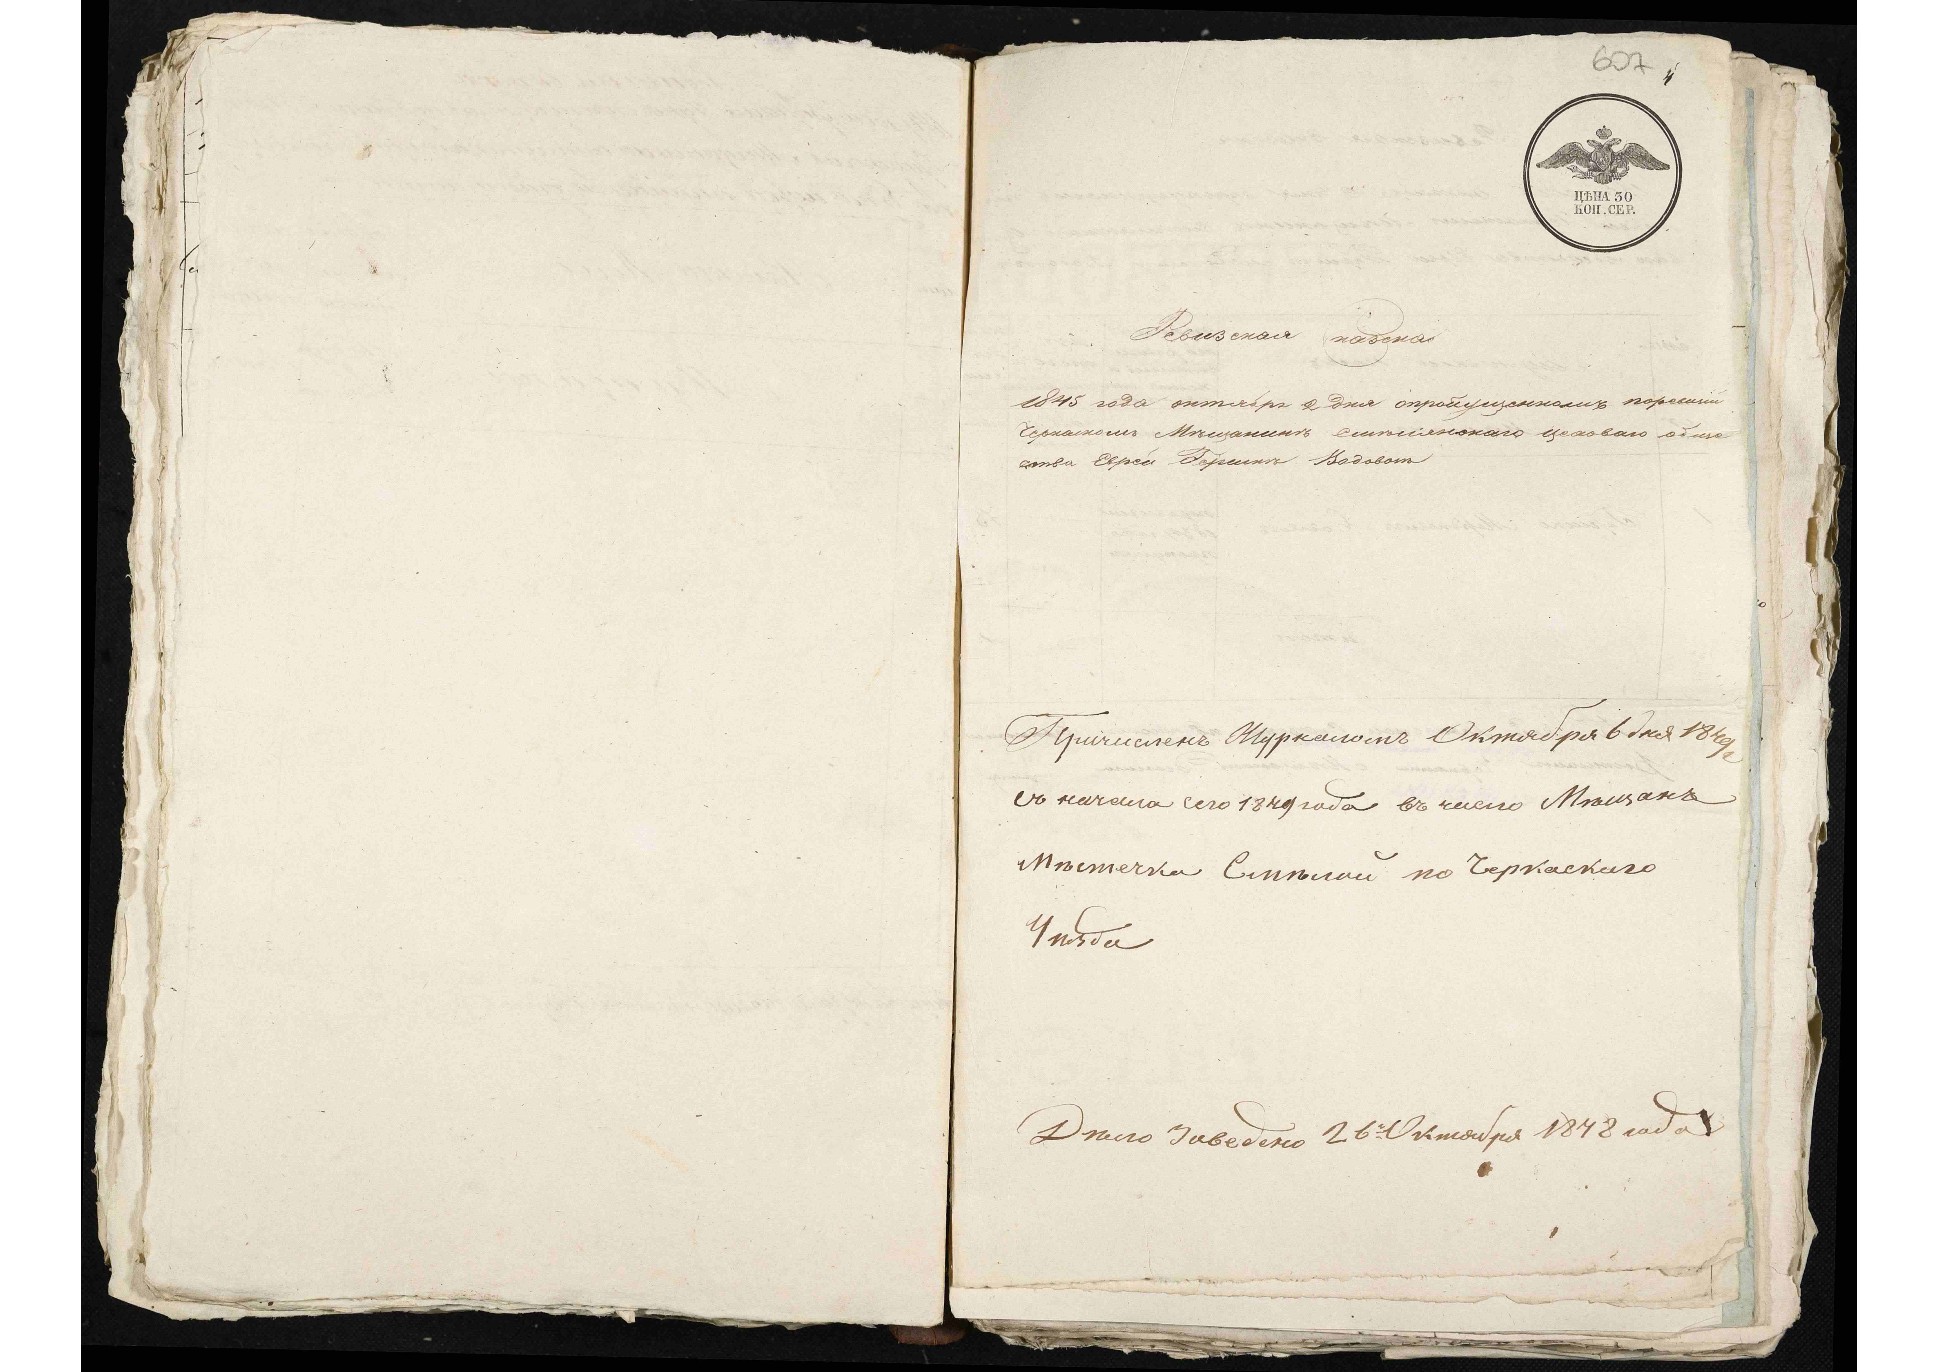 607
ЦѢНА 30
КОП. СЕР.
Ревизская казска
1845 года октября 2 дня опропущенномъ поревизіи
Черкаскомъ Мѣщанинѣ Смѣлянскаго цеховаго обще
ства Еврей Гершкѣ
Причисленъ Журналомъ Октября 6 дня 1849 г
съ начала сего 1849 года въ число Мѣщанъ
Мѣстечка Смѣлой по Черкаскаго
Уѣзда
Дѣло Заведено 26го Октября 1848 года